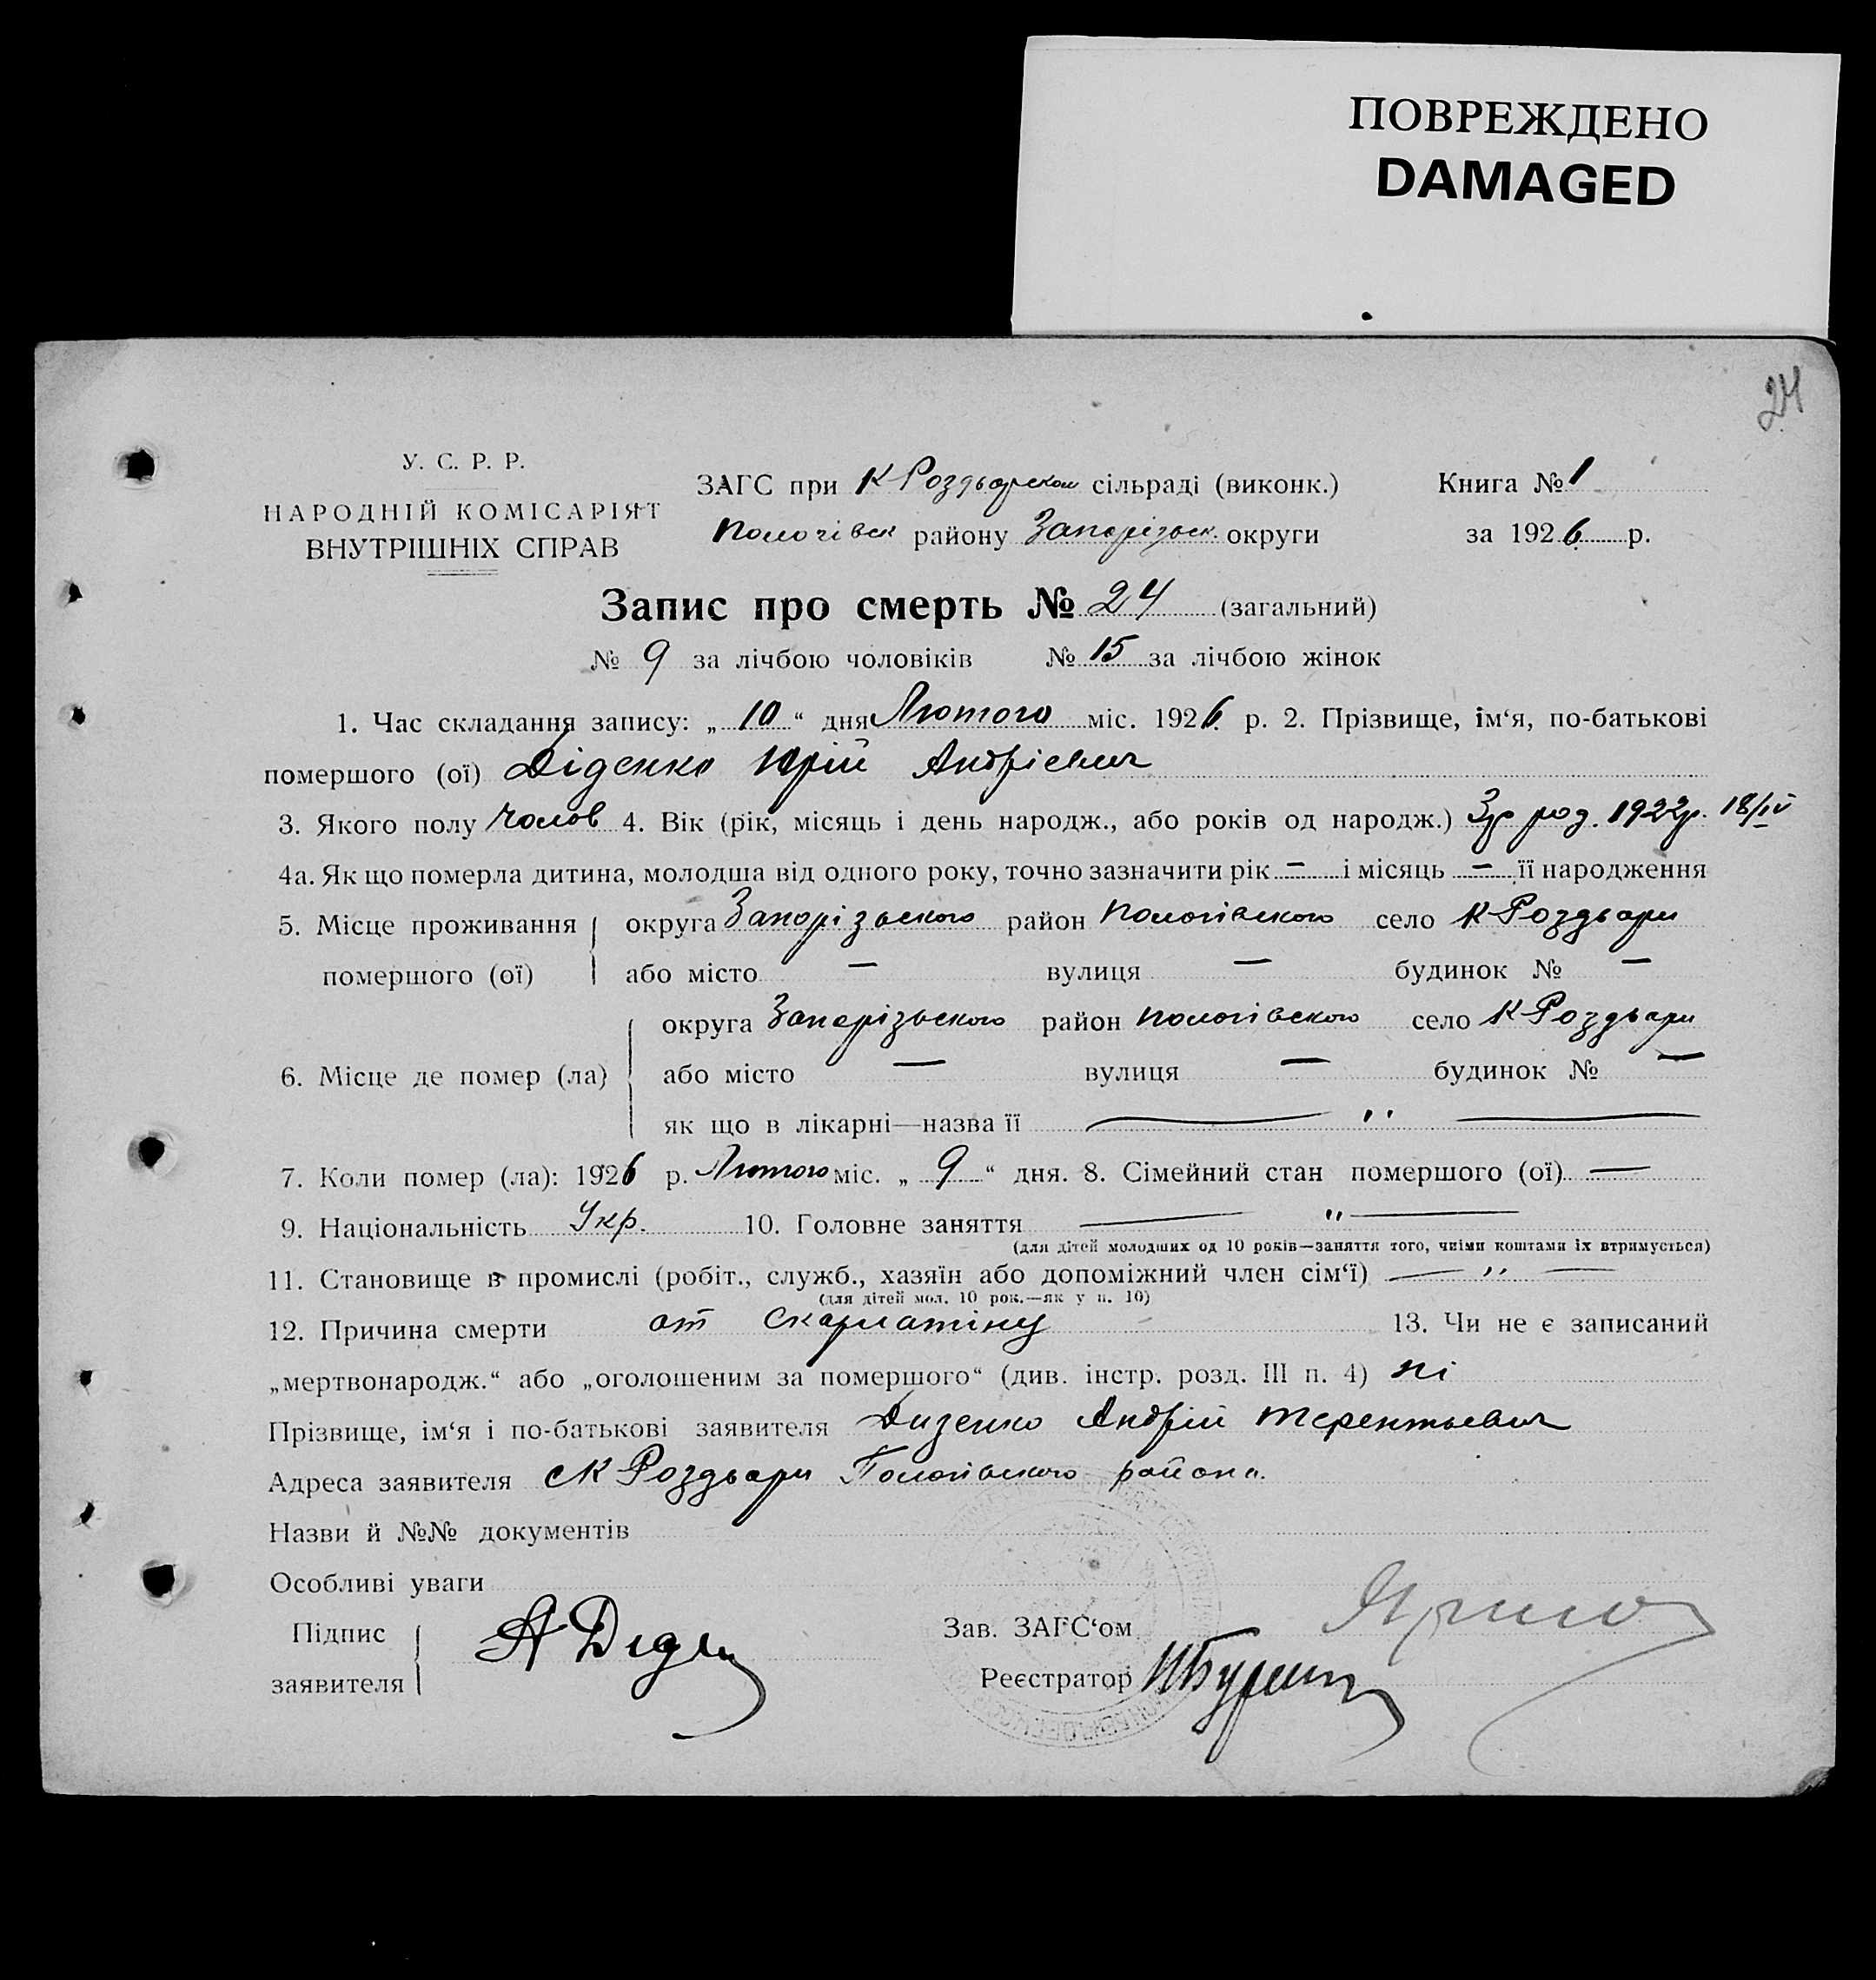 ПОВРЕЖДЕНО
DAMAGED
24
У. С. Р. Р.
НАРОДНІЙ КОМІСАРІЯТ
ВНУТРІШНІХ СПРАВ
ЗАГС при К Роздорском сільраді (виконк.)
Пологівск району Запорізьк. округи
Книга № 1
за 1926 р.
Запис про смерть № 24 (загальний)
№ 9 за лічбою чоловіків № 15 за лічбою жінок
1. Час складання запису: „ 10 “ дня Лютого міс. 1926 р. 2. Прізвище, ім‘я, по-батькові
помершого (ої) Діденко Юрій Андрієвич
3. Якого полу Чолов 4. Вік (рік, місяць і день народж., або років од народж.) 3р род. 1922р. 18/IV
4а. Як що померла дитина, молодша від одного року, точно зазначити рік — і місяць — її народження
5. Місце проживання округа Запорізьского район Пологівского село К Роздъори
помершого (ої) або місто — вулиця — будинок № —
округа Запорізьского район Пологівского село К Роздъори
6. Місце де помер (ла) або місто — вулиця — будинок № —
як що в лікарні—назва її — „ —
7. Коли помер (ла): 1926 р. Лютого міс. „ 9 “ дня. 8. Сімейний стан помершого (ої) —
9. Національність Укр. 10. Головне заняття — „ —
(для дітей молодших од 10 років—заняття того, чиїми коштами їх втримується)
11. Становище в промислі (робіт., служб., хазяїн або допоміжний член сім‘ї) — „ —
(для дітей мол. 10 рок.—як у п. 10)
12. Причина смерти от скарлатіну 13. Чи не є записаний
„мертвонародж.“ або „оголошеним за помершого“ (див. інстр. розд. III п. 4) ні
Прізвище, ім‘я і по-батькові заявителя Диденко Андрій Терентьевич
Адреса заявителя с К Роздъори Пологівского района.
Назви й №№ документів
Особливі уваги
Підпис
заявителя
А Діден
Зав. ЗАГС‘ом
Реєстратор